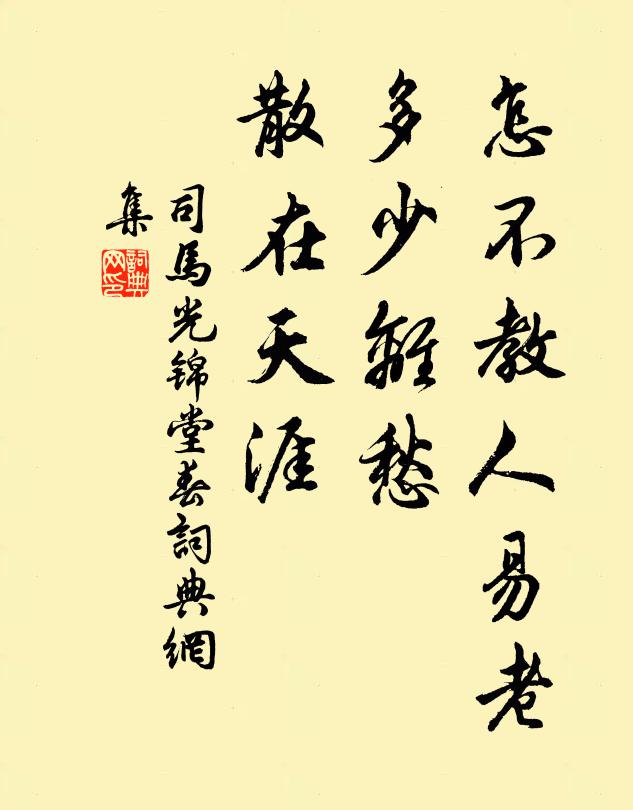 怎不教人易老
多少離愁
散在天涯
司馬光锦堂春詞典網
集
詞典
网印